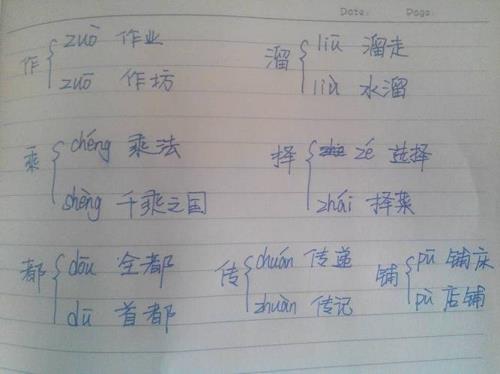 Date: Page:
作 zuò 作业
zuō 作坊
溜 liū 溜走
liù 水溜
乘 chéng 乘法
shèng 千乘之国
择 zé 选择
zhái 择菜
都 dōu 全都
dū 首都
传 chuán 传递
zhuàn 传记
铺 pū 铺床
pù 店铺